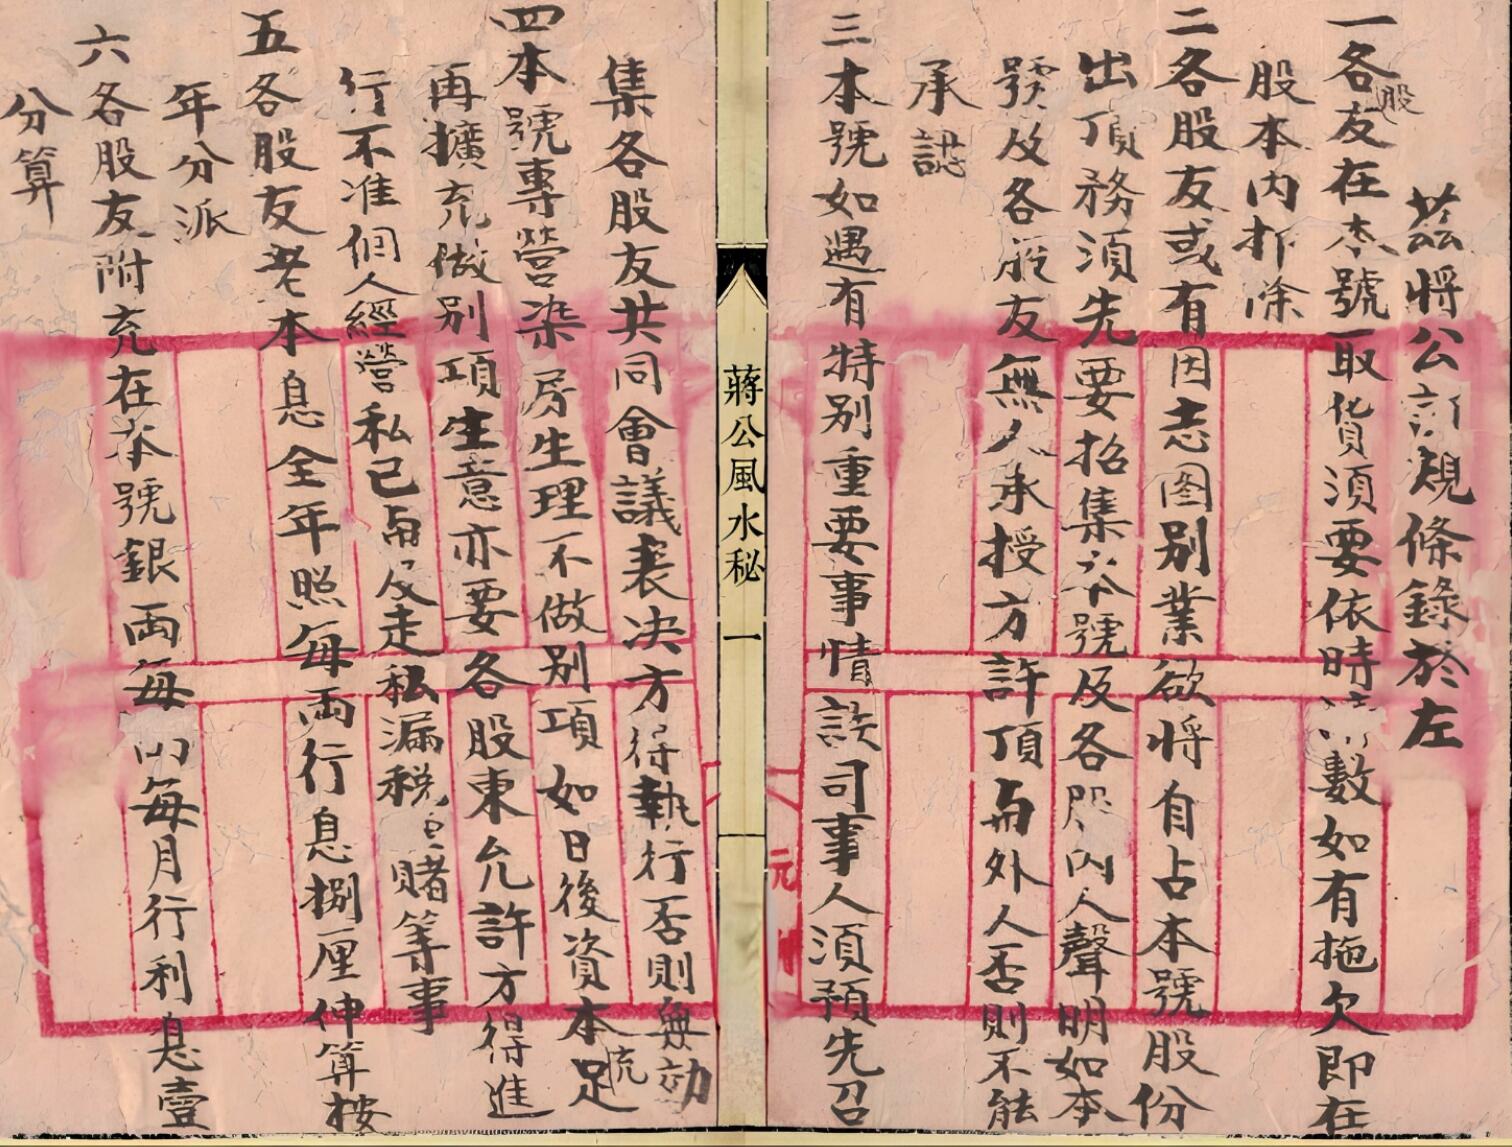 茲將公訂規條錄於左
一各股友在本號取貨須要依時清數如有拖欠即在
股本內扣除
二各股友或有因志图别業欲将自占本號股份
出頂務須先要招集本號及各股內人聲明如本
號及各股友無人承授方許頂與外人否則不能
承認
三本號如遇有特别重要事情該司事人須預先召
集各股友共同會議表决方得執行否則無効
四本號專營染房生理不做别項如日後資本充足
再擴充做别項生意亦要各股東允許方得進
行不准個人經營私已與及走私漏税賭等事
五各股友老本息全年照每両行息捌厘伸算按
年分派
六各股友附充在本號銀両每両每月行利息壹
分算
蔣公風水秘 一
元